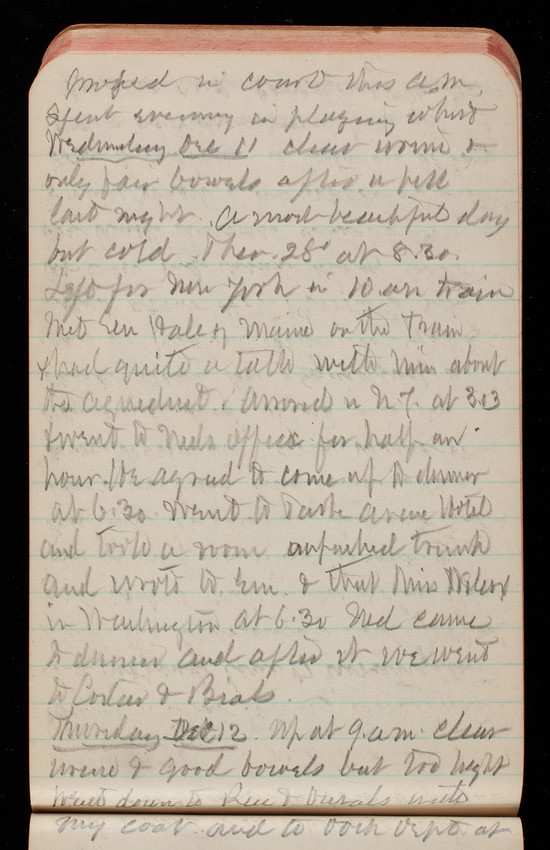 in court this a.m.
Spent evening in playing whist
Wednesday Dec 11 clear urine &
only fair bowels after a pill
last night. A most beautiful day
but cold. Ther. 28° at 8.30.
Left for New York in 10 am train
Met Sen Hale of Maine on the train
& had quite a talk with him about
the aqueduct. Arrived in N Y. at 3.13
& went to Neds office for half an
hour. He agreed to come up to dinner
at 6.30. Went to Park Avenue Hotel
and took a room unpacked trunk
and wrote to Em. & that Miss
in Washington. at 6.30 Ned came
to dinner and after it we went
to Coster & Bials.
Thursday Dec 12. Up at 9 a.m. clear
urine & good bowels but too
Went down to with
my coat and to Dock Dept. at